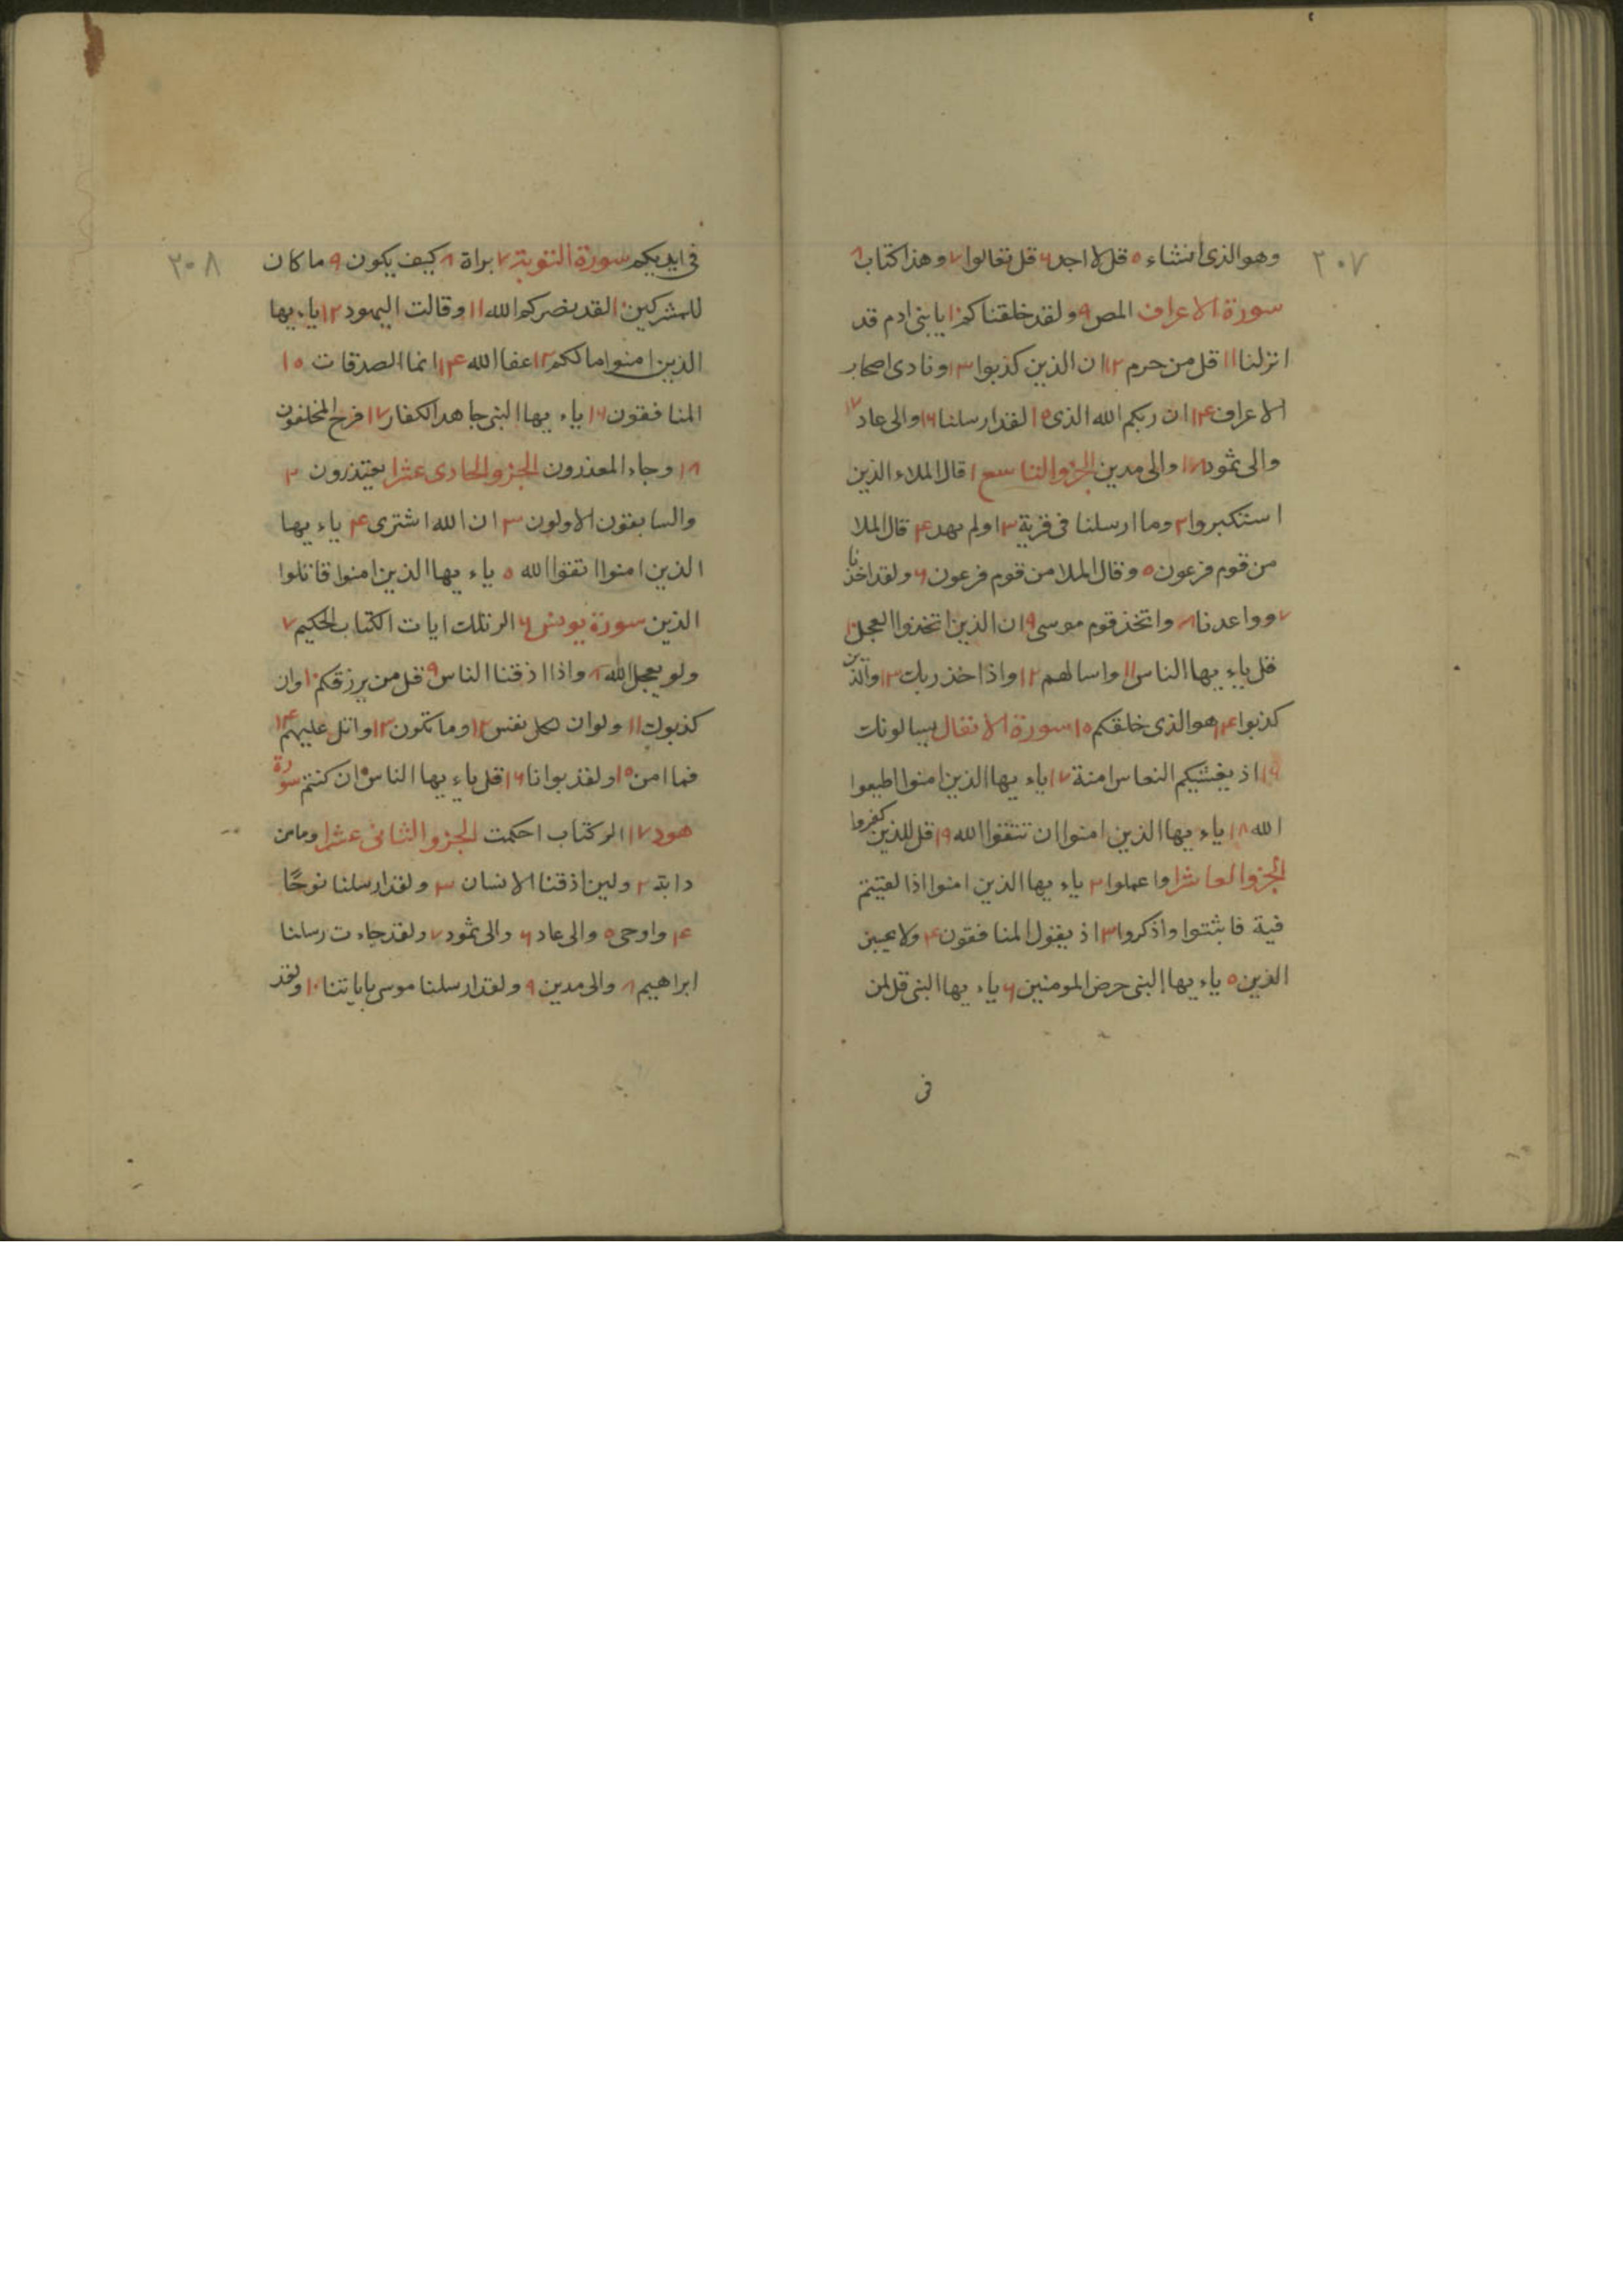 ٢٠٧
وهو الذى انشاء ٥ قل لا اجد ٦ قل تعالوا ٧ وهذا كتاب ٨
سورة الاعراف المص ٩ ولقد خلقناكم ١٠ يا بنى ادم قد
انزلنا ١١ قل من حرم ١٢ ان الذين كذبوا ١٣ ونادى اصحاب
الاعراف ١٤ ان ربكم الله الذى ١٥ لقد ارسلنا ١٦ والى عاد ١٧
والى ثمود ١٨ والى مدين الجزو التاسع ١ قال الملاء الذين
استكبروا ٢ وما ارسلنا فى قرية ٣ اولم يهد ٤ قال الملا
من قوم فرعون ٥ وقال الملا من قوم فرعون ٦ ولقد اخذنا
٧ وواعدنا ٨ واتخذ قوم موسى ٩ ان الذين اتخذوا العجل ١٠
قل ياء يها الناس ١١ واسالهم ١٢ واذا خذ ربك ١٣ والذين
كذبوا ١٤ هو الذى خلقكم ١٥ سورة الانفال يسالونك
١٦ اذ يغشيكم النعاس امنة ١٧ ياء يها الذين امنوا اطيعوا
الله ١٨ ياء يها الذين امنوا ان تتقوا الله ١٩ قل للذين كفروا
الجزو العاشر ١ واعملوا ٢ ياء يها الذين امنوا اذا لقيتم
فية فاثبتوا واذكروا ٣ اذ يقول المنافقون ٤ ولا يحسبن
الذين ٥ ياء يها النبى حرض المومنين ٦ ياء يها النبى قل لمن
فى
٢٠٨
فى ايديكم سورة التوبة ٧ براة ٨ كيف يكون ٩ ما كان
للمشركين ١٠ لقد نصركم الله ١١ وقالت اليهود ١٢ ياء يها
الذين امنوا مالكم ١٣ عفا الله ١٤ انما الصدقات ١٥
المنافقون ١٦ ياء يها النبى جاهد الكفار ١٧ فرح المخلفون
١٨ وجاء المعذرون الجزو الحادى عشر ١ يعتذرون ٢
والسابقون الاولون ٣ ان الله اشترى ٤ ياء يها
الذين امنوا اتقوا الله ٥ ياء يها الذين امنوا قاتلوا
الذين سورة يونس ٦ الر تلك ايات الكتاب الحكيم ٧
ولو يعجل الله ٨ واذا اذقنا الناس ٩ قل من يرزقكم ١٠ وان
كذبوك ١١ ولو ان لكل نفس ١٢ وما تكون ١٣ واتل عليهم ١٤
فما امن ١٥ ولقد بوانا ١٦ قل ياء يها الناس ان كنتم سورة
هود ١٧ الر كتاب احكمت الجزو الثانى عشر ١ وما من
دابة ٢ ولين اذقنا الانسان ٣ ولقد ارسلنا نوحًا
٤ واوحى ٥ والى عاد ٦ والى ثمود ٧ ولقد جاءت رسلنا
ابراهيم ٨ والى مدين ٩ ولقد ارسلنا موسى باياتنا ١٠ ولقد